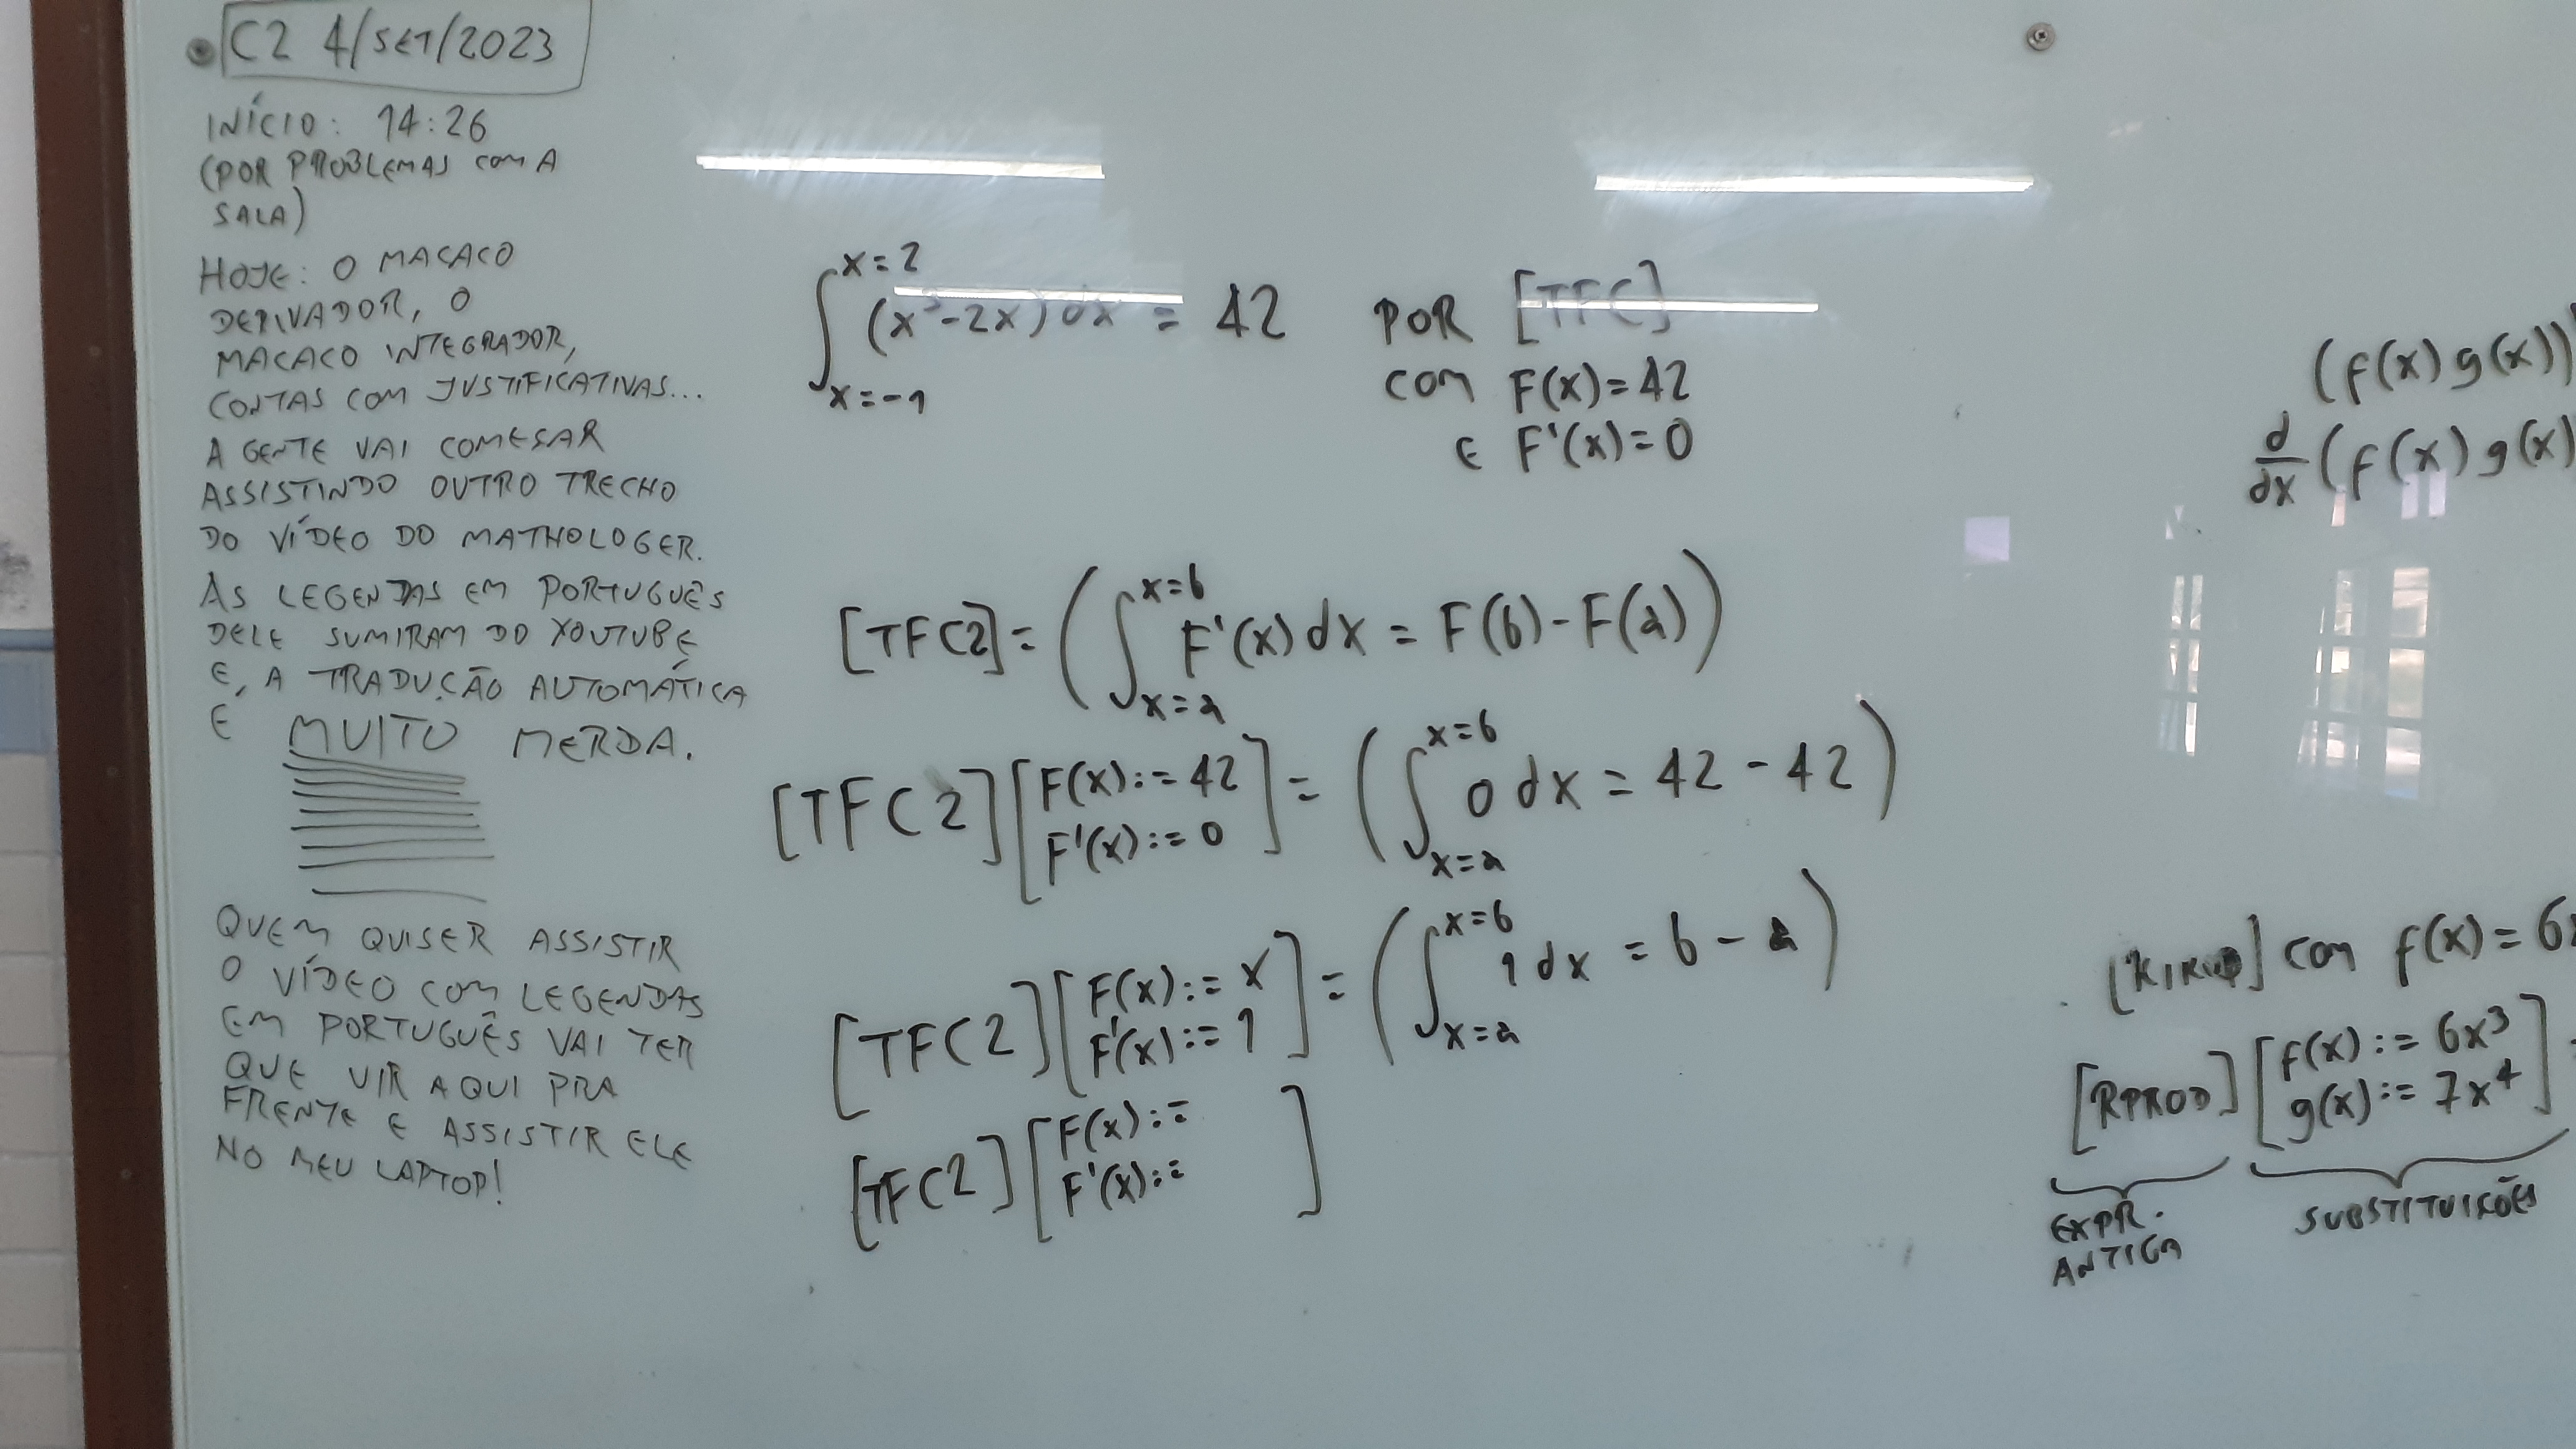 C2 4/SET/2023
INÍCIO: 14:26
(POR PROBLEMAS COM A
SALA)
HOJE: O MACACO
DERIVADOR, O
MACACO INTEGRADOR,
CONTAS COM JUSTIFICATIVAS...
A GENTE VAI COMESAR
ASSISTINDO OUTRO TRECHO
DO VÍDEO DO MATHOLOGER.
AS LEGENDAS EM PORTUGUÊS
DELE SUMIRAM DO YOUTUBE
E A TRADUÇÃO AUTOMÁTICA
É MUITO MERDA.
QUEM QUISER ASSISTIR
O VÍDEO COM LEGENDAS
EM PORTUGUÊS VAI TER
QUE VIR AQUI PRA
FRENTE E ASSISTIR ELE
NO MEU LAPTOP!
∫_{x=-1}^{x=2} (x³-2x) dx = 42
POR [TFC]
COM F(x)=42
E F'(x)=0
[TFC2] = (∫_{x=a}^{x=b} F'(x) dx = F(b) - F(a))
[TFC2] [F(x):=42
F'(x):=0] = (∫_{x=a}^{x=b} 0 dx = 42 - 42)
[TFC2] [F(x):=x
F'(x):=1] = (∫_{x=a}^{x=b} 1 dx = b - a)
[TFC2] [F(x):=
F'(x):= ]
(f(x)g(x))
d/dx (f(x)g(x)
COM f(x)=6
[RPROD] [f(x):=6x³
g(x):=7x⁴]
EXPR.
ANTIGA
SUBSTITUIÇÕES